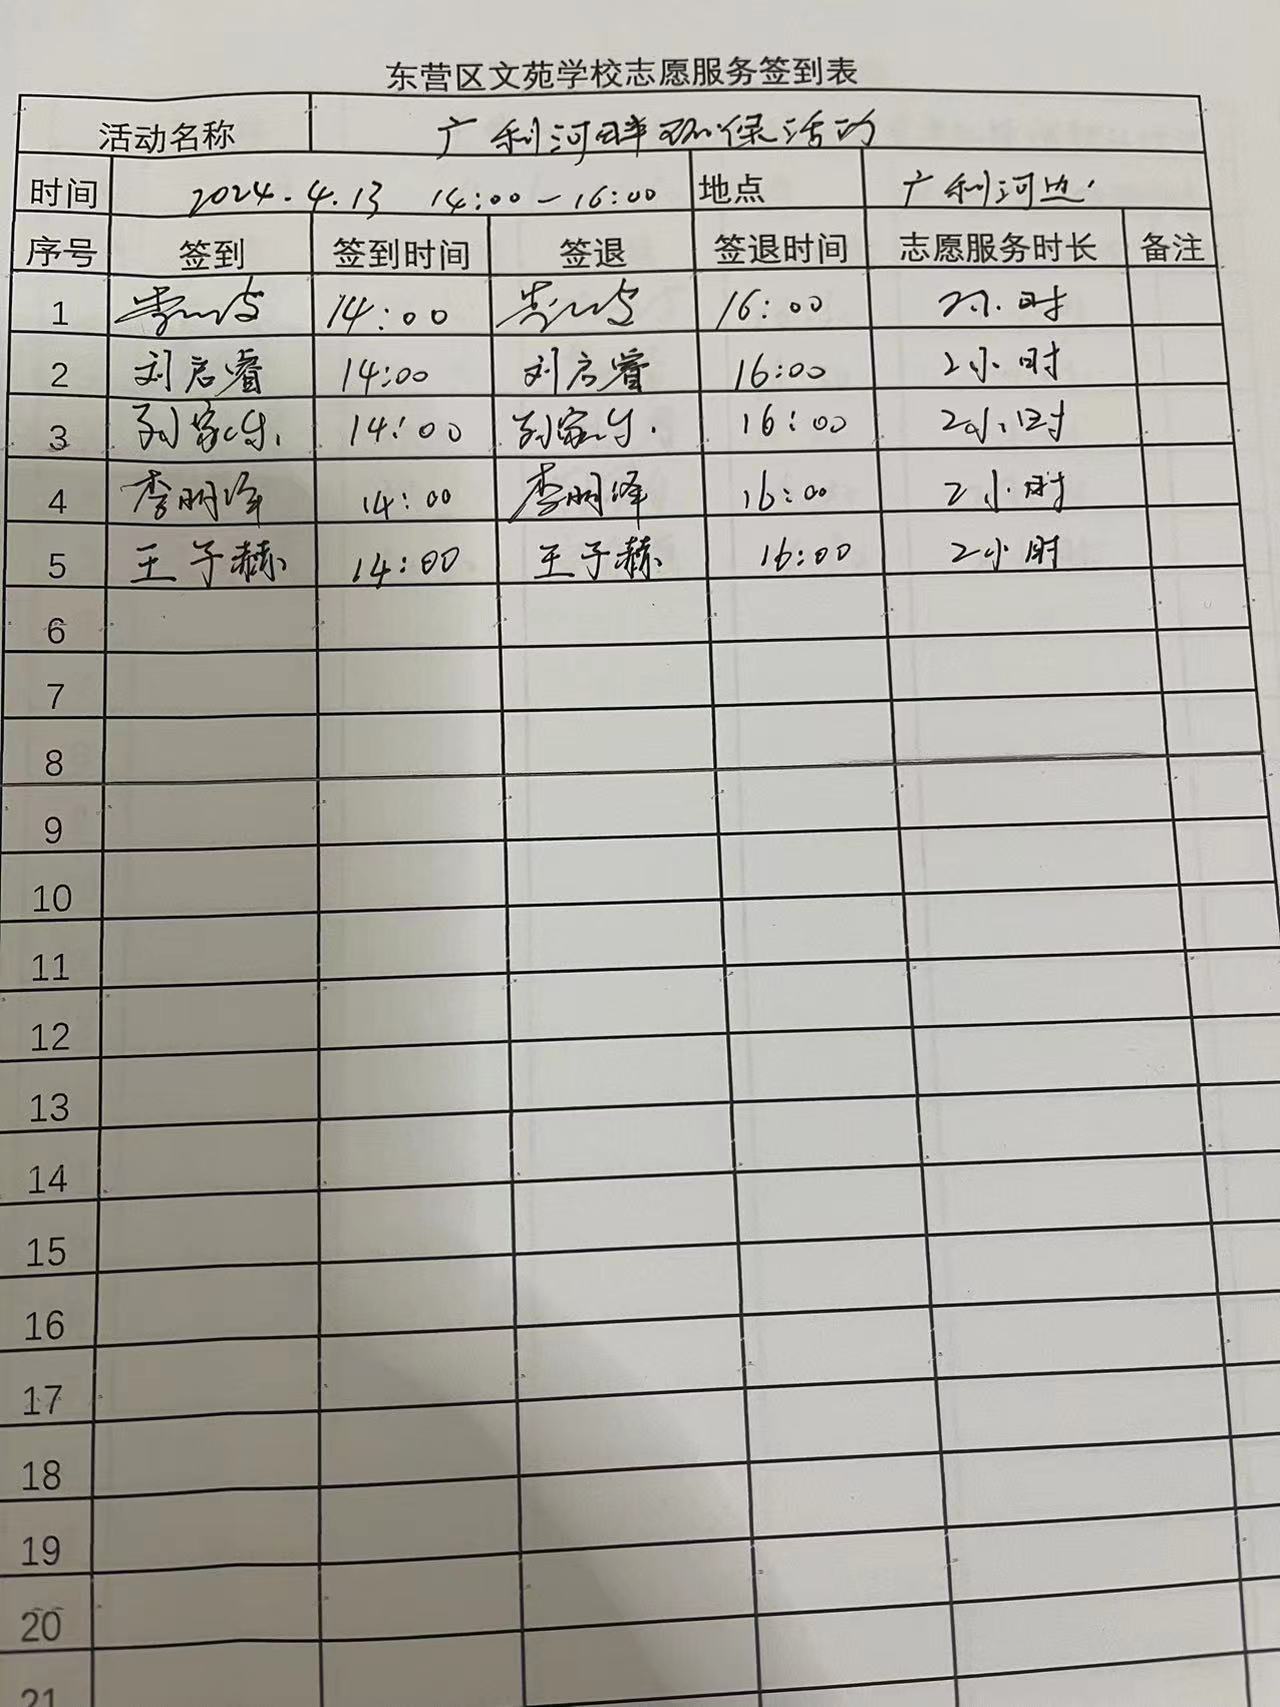 东营区文苑学校志愿服务签到表
活动名称 广利河畔环保活动
时间 2024.4.13 14:00-16:00 地点 广利河边
序号 签到 签到时间 签退 签退时间 志愿服务时长 备注
1 14:00 16:00 2小时
2 刘启睿 14:00 刘启睿 16:00 2小时
3 14:00 16:00 2小时
4 李明泽 14:00 李明泽 16:00 2小时
5 王子赫 14:00 王子赫 16:00 2小时
6
7
8
9
10
11
12
13
14
15
16
17
18
19
20
21